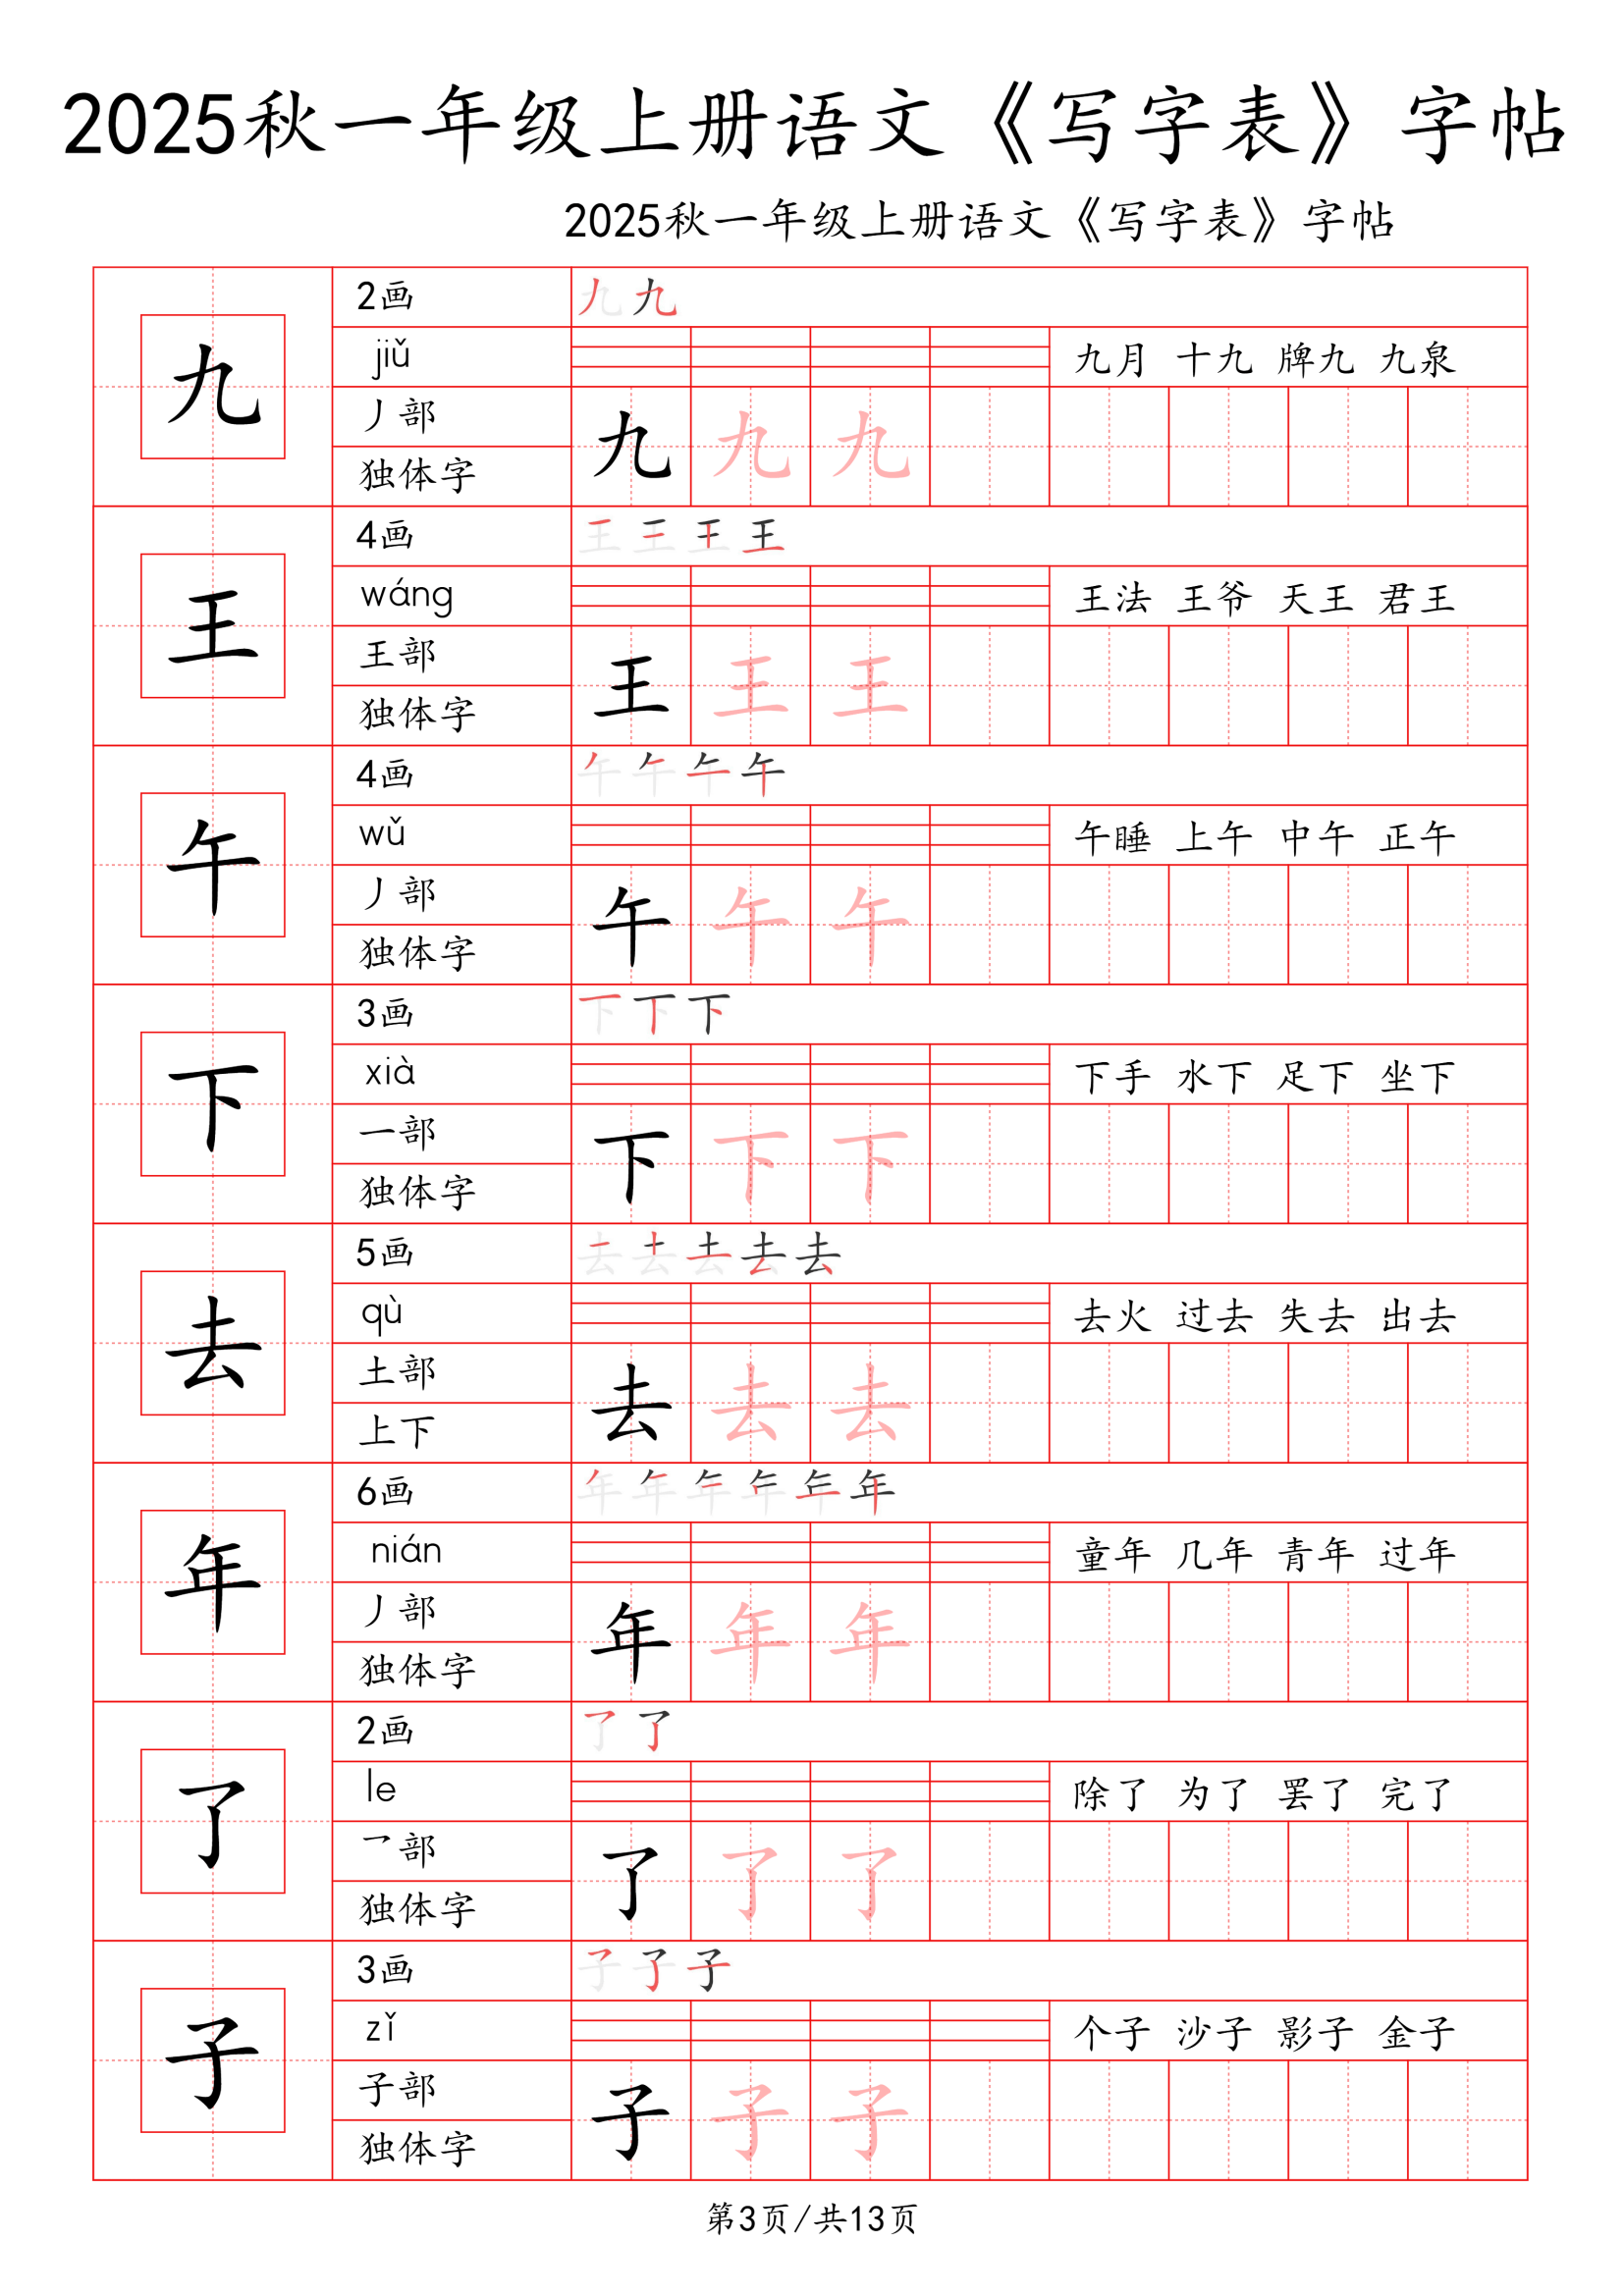 2025秋一年级上册语文《写字表》字帖
2025秋一年级上册语文《写字表》字帖
九
2画
九 九
jiǔ
九月 十九 牌九 九泉
丿部
九 九 九
独体字
王
4画
王 王 王 王
wáng
王法 王爷 天王 君王
王部
王 王 王
独体字
午
4画
午 午 午 午
wǔ
午睡 上午 中午 正午
丿部
午 午 午
独体字
下
3画
下 下 下
xià
下手 水下 足下 坐下
一部
下 下 下
独体字
去
5画
去 去 去 去 去
qù
去火 过去 失去 出去
土部
去 去 去
上下
年
6画
年 年 年 年 年 年
nián
童年 几年 青年 过年
丿部
年 年 年
独体字
了
2画
了 了
le
除了 为了 罢了 完了
乛部
了 了 了
独体字
子
3画
子 子 子
zǐ
个子 沙子 影子 金子
子部
子 子 子
独体字
第3页/共13页